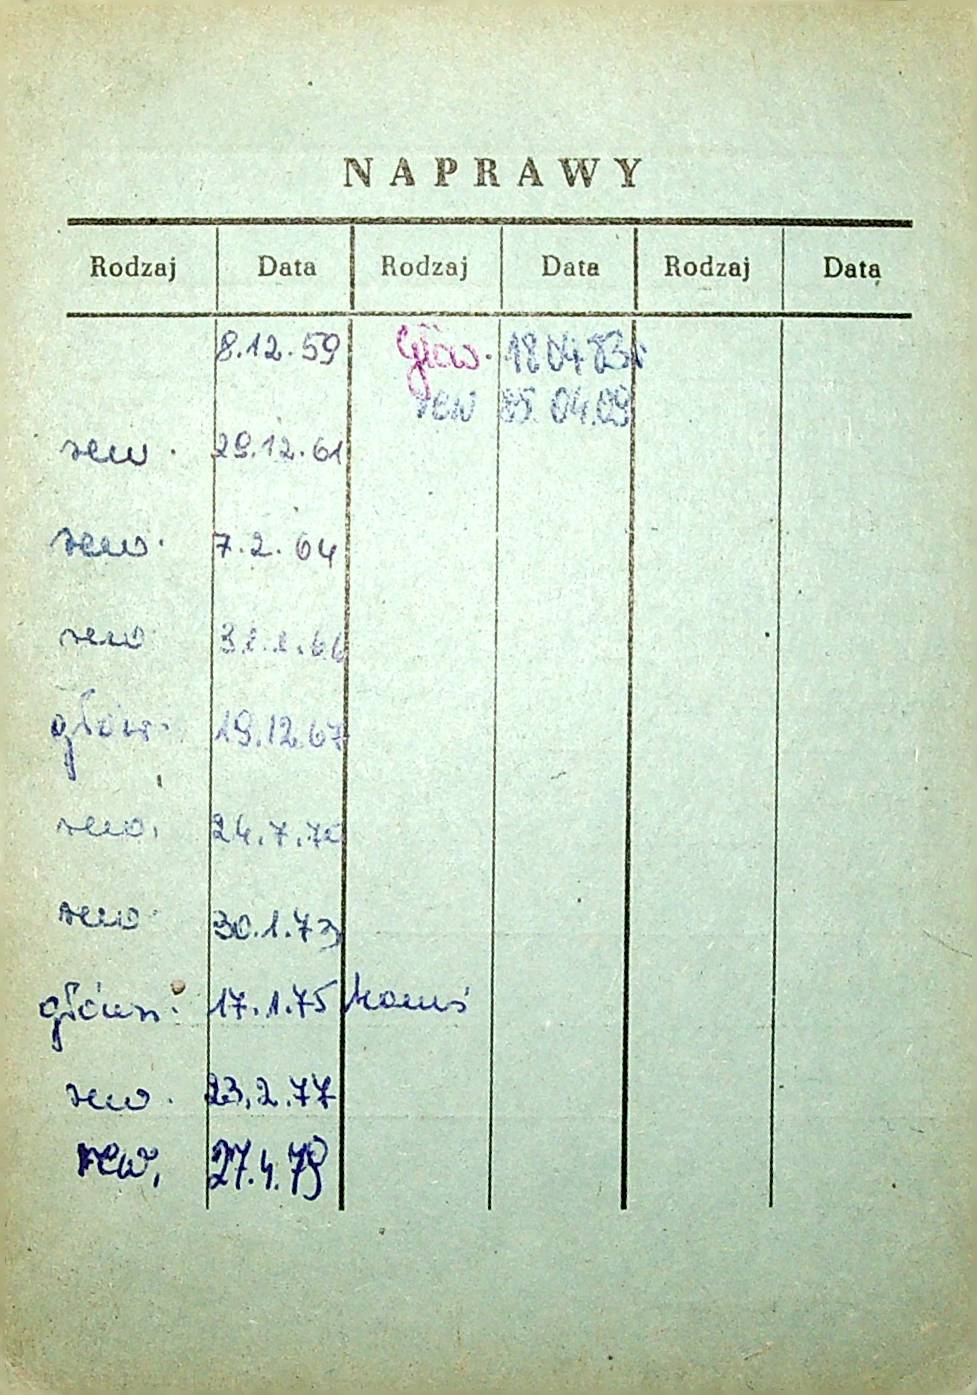 NAPRAWY
Rodzaj Data Rodzaj Data Rodzaj Data
8.12.59 Głów. 18 04 83r
rew 85.04.09
rew. 29.12.61
rew. 7.2.64
rew 31.1.66
głów. 19.12.67
rew. 24.7.70
rew. 30.1.73
główn. 17.1.75
rew. 23.2.77
rew. 27.4.79